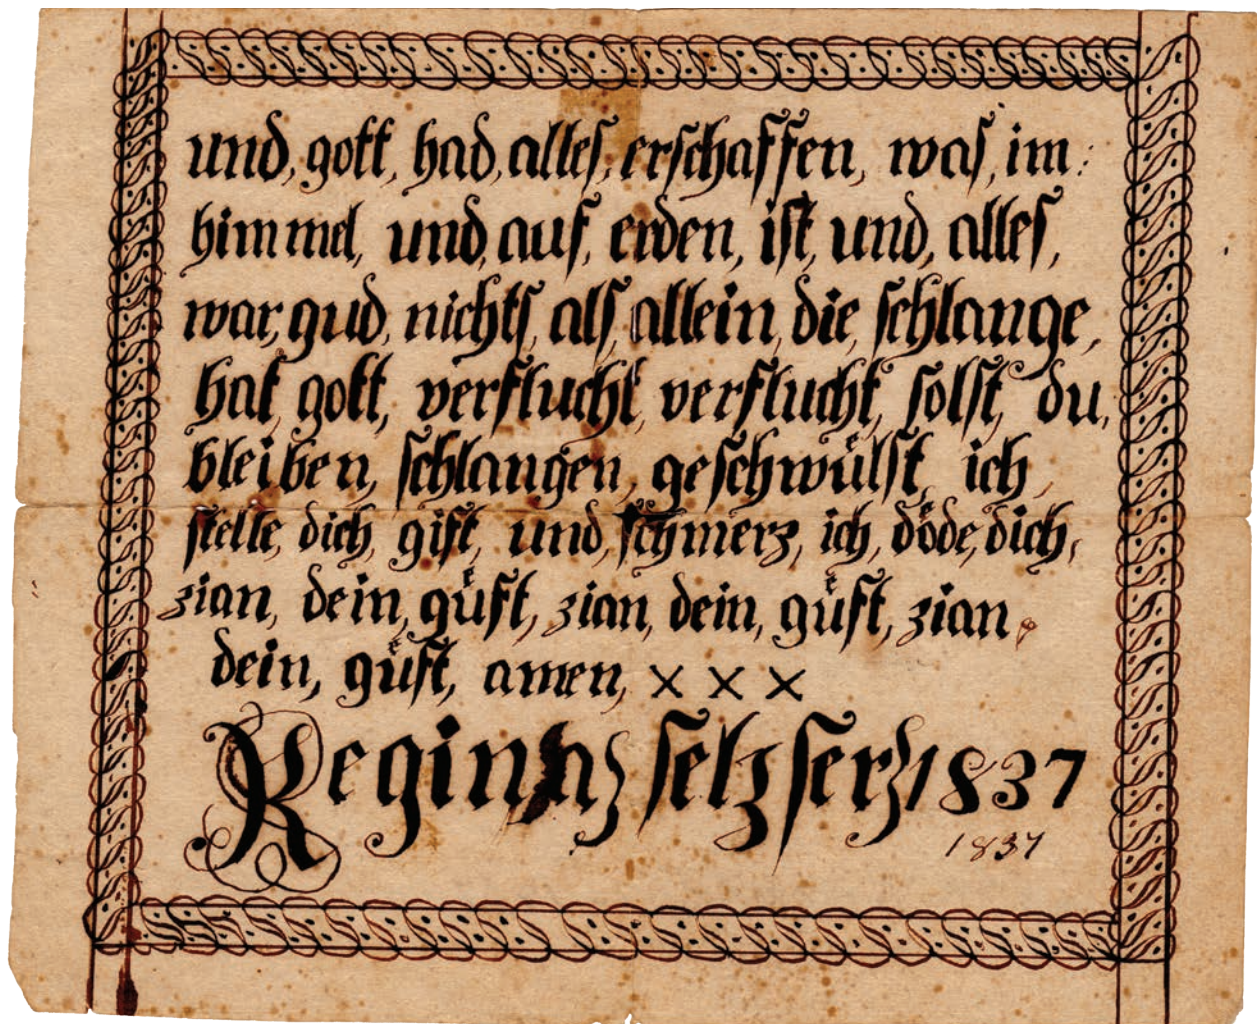 und, gott, had, alles, erschaffen, was, im:
himmel, und, auf, erden, ist, und, alles,
war, gud, nichts, als, allein, die, schlange,
hat, gott, verflucht, verflucht, solst, du,
bleiben, schlangen, geschwülst, ich,
stelle, dich, gift, und, schmerz, ich, döde, dich,
zian, dein, güft, zian, dein, güft, zian,
dein, güft, amen, x x x
Regina selzserz 1837
1837